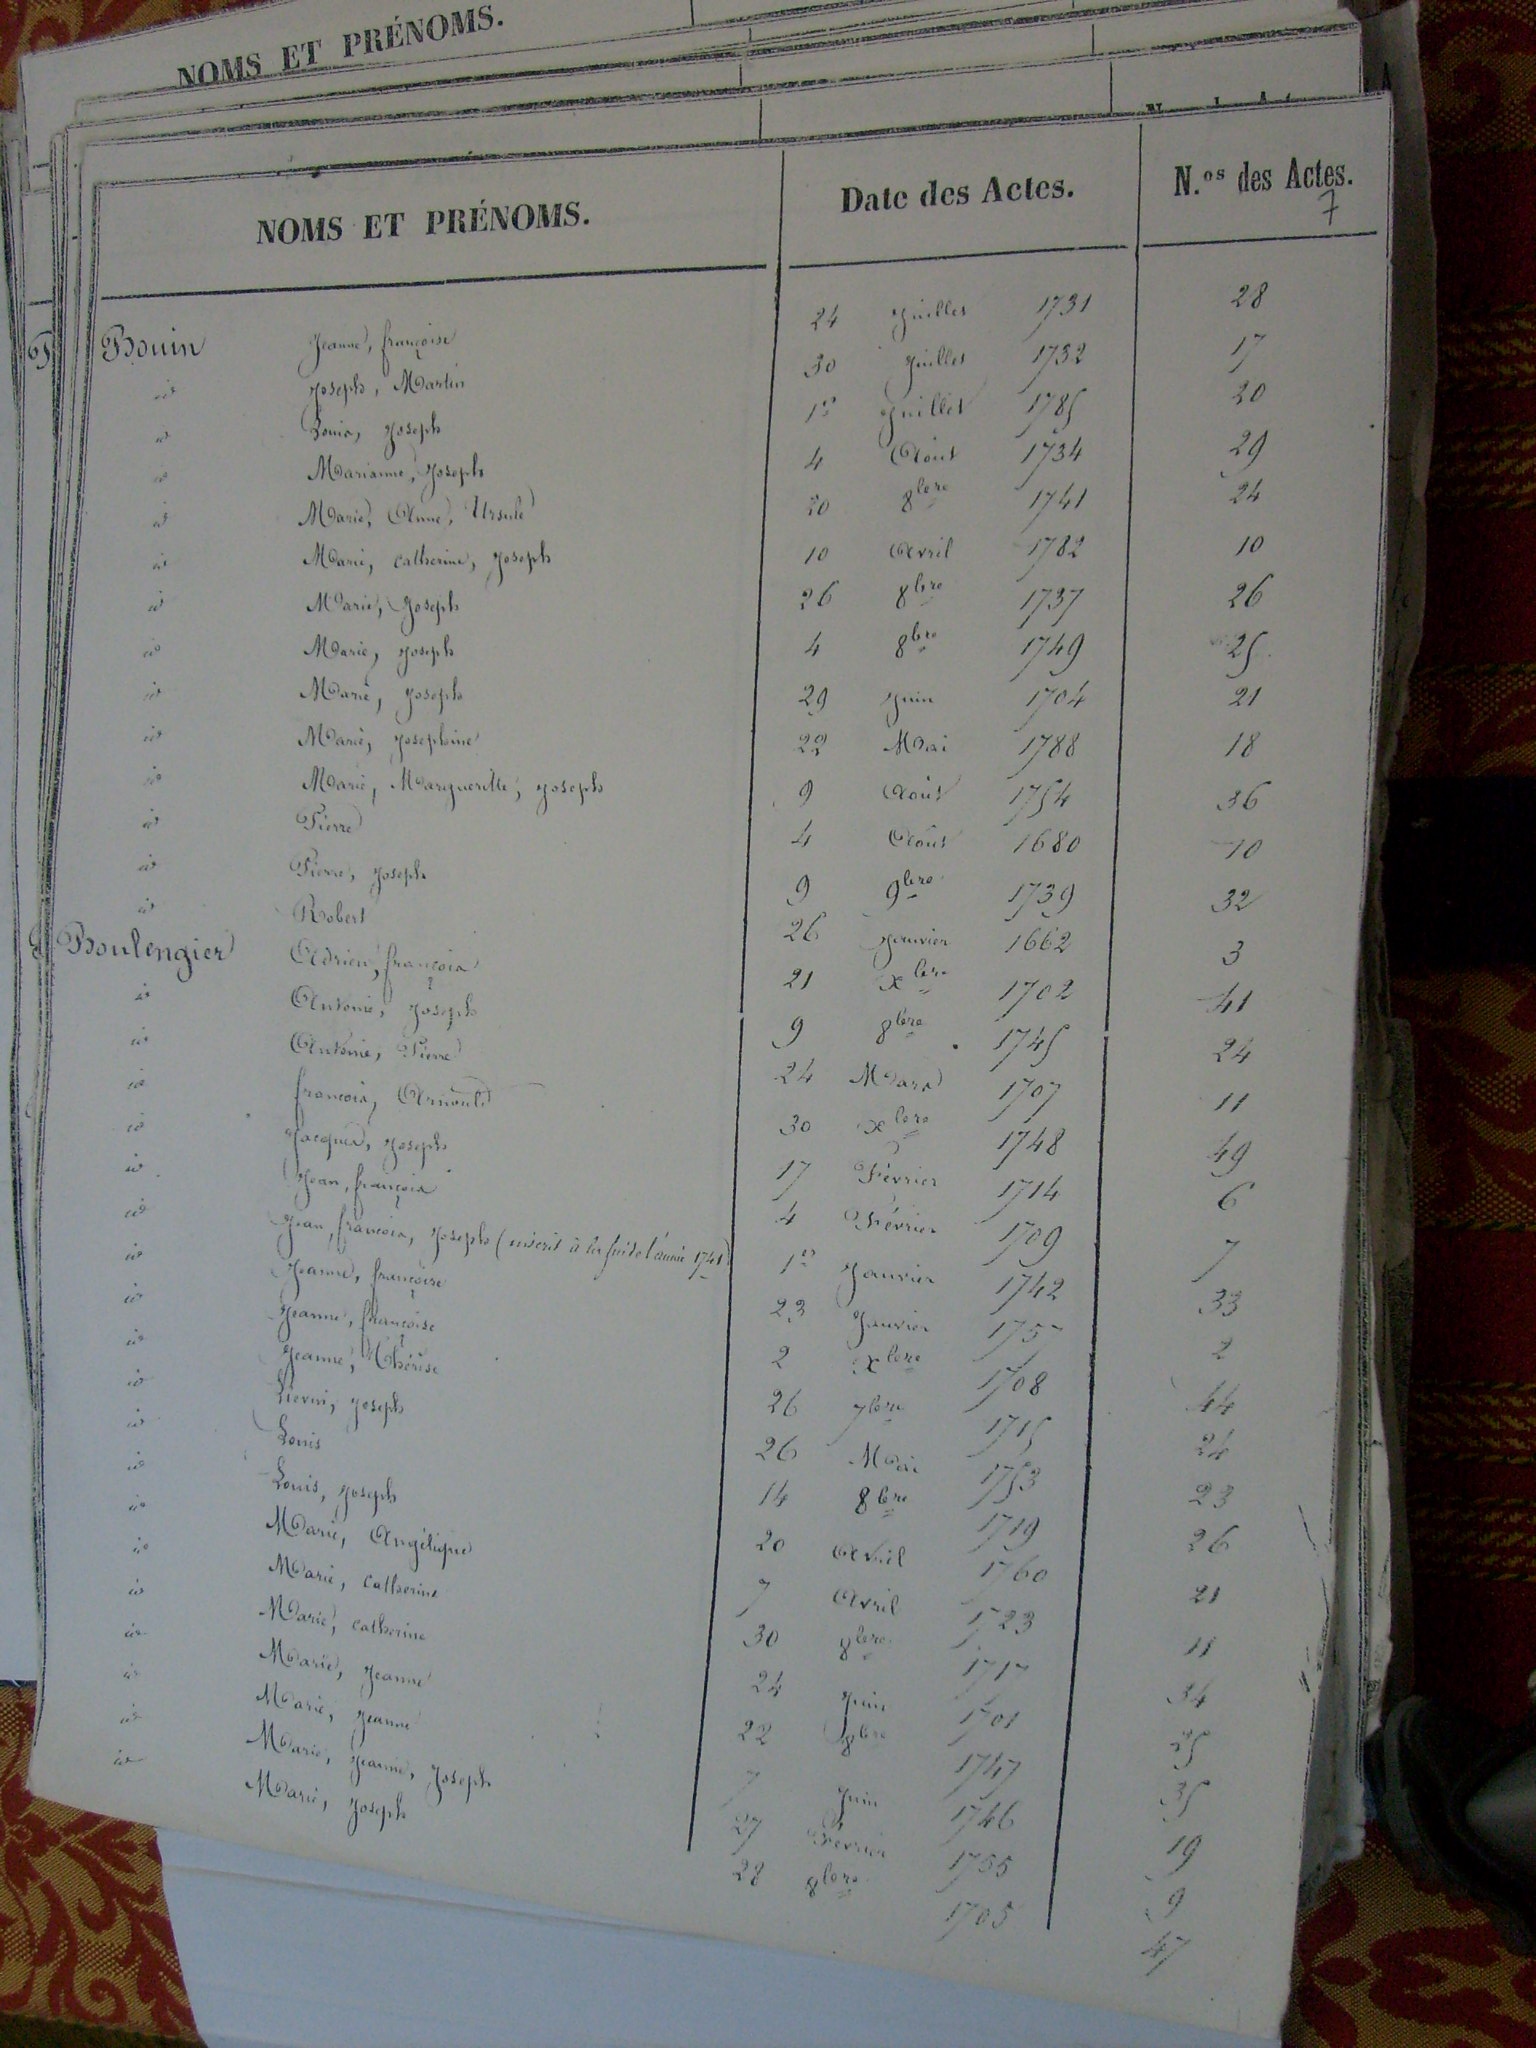 NOMS ET PRÉNOMS.
NOMS ET PRÉNOMS. Date des Actes. N.os des Actes.
7
Bouin Jeanne, françoise 24 Juillet 1731 28
id Joseph, Martin 30 Juillet 1732 17
id Louis, Joseph 1er Juillet 1785 20
id Marianne, Joseph 4 Août 1734 29
id Marie, Anne, Ursule 20 8bre 1741 24
id Marie, catherine, Joseph 10 Avril 1782 10
id Marie, Joseph 26 8bre 1737 26
id Marie, Joseph 4 8bre 1749 25
id Marie, Joseph 29 Juin 1704 21
id Marie, Josephine 22 Mai 1788 18
id Marie, Margueritte, Joseph 9 Août 1754 36
id Pierre 4 Août 1680 10
id Pierre, Joseph 9 9bre 1739 32
id Robert 26 Janvier 1662 3
Boulengier Adrien, françois 21 xbre 1702 41
id Antoine, Joseph 9 8bre 1745 24
id Antoine, Pierre 24 Mars 1707 11
id françois, Arnould 30 xbre 1748 49
id Jacques, Joseph 17 Février 1714 6
id Jean, françois 4 Février 1709 7
id Jean, françois, Joseph (inscrit à la fin de l'année 1741) 1er Janvier 1742 33
id Jeanne, françoise 23 Janvier 1757 2
id Jeanne, françoise 2 xbre 1708 44
id Jeanne, Thérèse 26 7bre 1715 24
id Lievin, Joseph 26 Mai 1753 23
id Louis 14 8bre 1719 26
id Louis, Joseph 20 Avril 1760 21
id Marie, Angélique 7 Avril 1723 11
id Marie, catherine 30 8bre 1717 34
id Marie, catherine 24 Juin 1701 25
id Marie, Jeanne 22 8bre 1747 35
id Marie, Jeanne 7 Juin 1746 19
id Marie, Jeanne, Joseph 27 Février 1755 9
id Marie, Joseph 28 8bre 1705 47